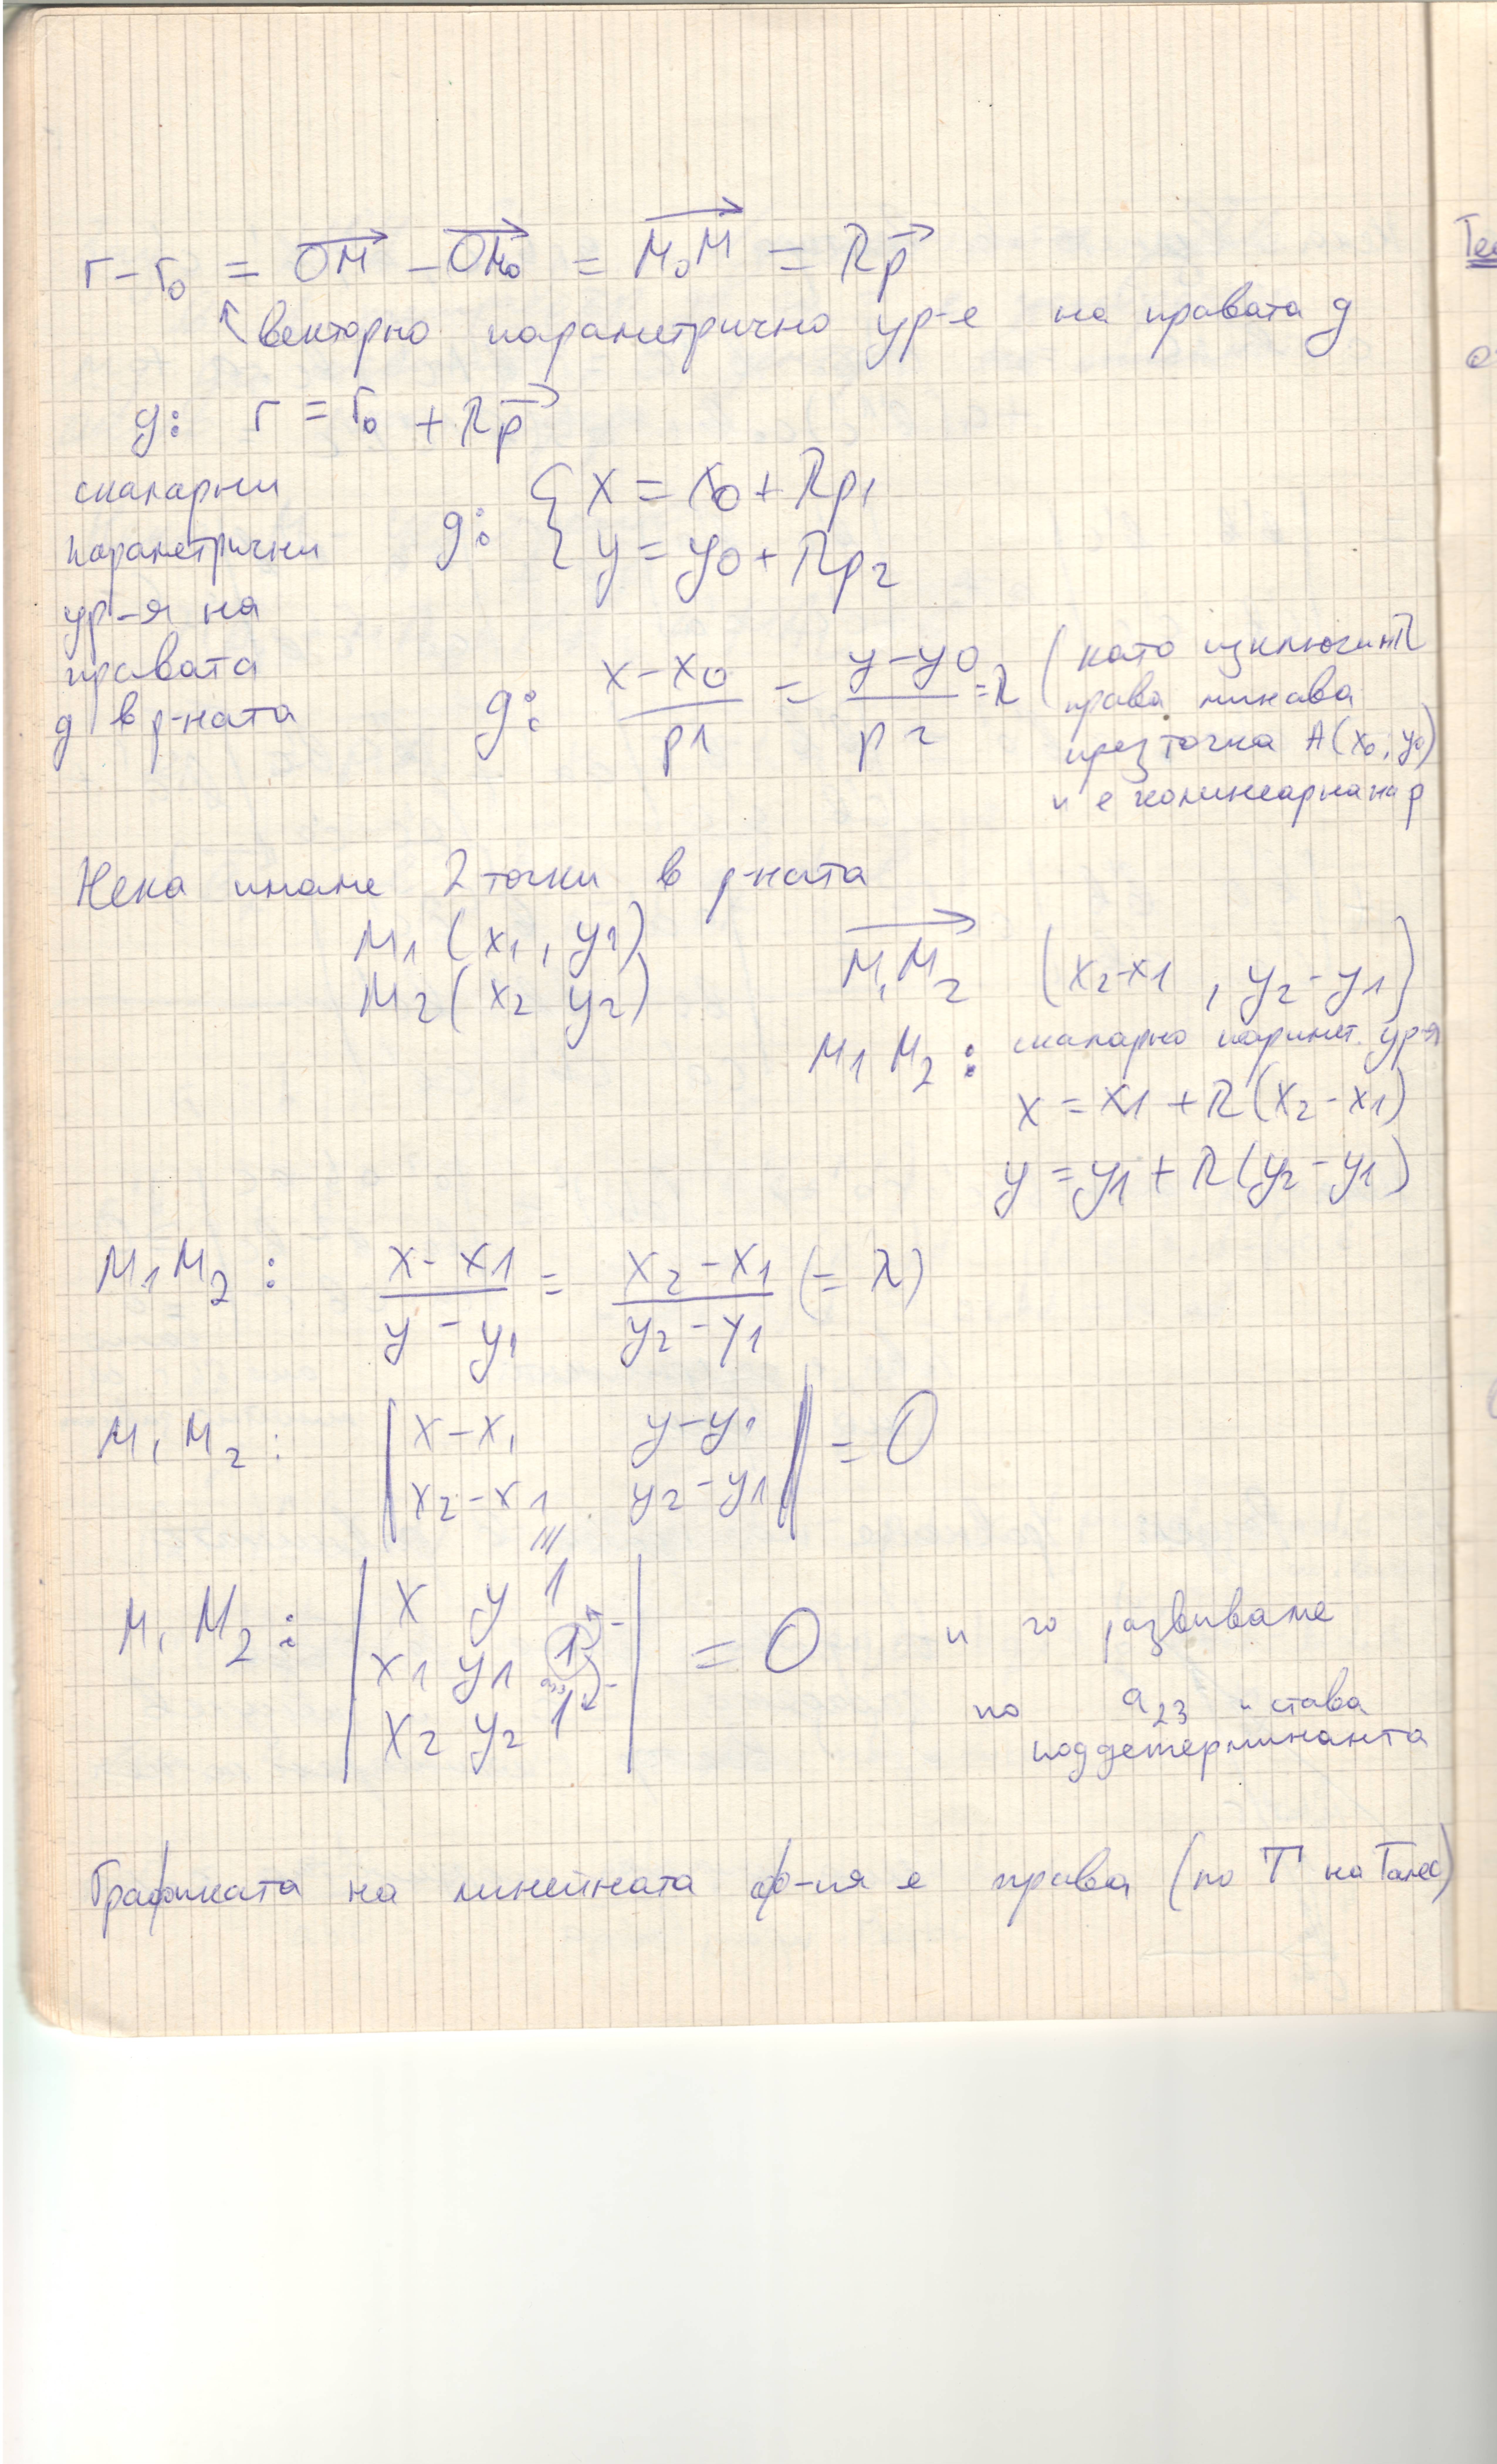 r - r₀ = OM→ - OM₀→ = M₀M→ = λp→
векторно параметрично ур-е на правата g
g: r = r₀ + λp→
скаларни
параметрични
ур-я на
правата
g в р-ната
g: { x = x₀ + λp₁
y = y₀ + λp₂
g: (x - x₀)/p1 = (y - y₀)/p2 = λ
(като изключим λ
права минава
през точка A(x₀, y₀)
и е колинеарна на p
Нека имаме 2 точки в р-ната
M₁(x₁, y₁)
M₂(x₂ y₂)
M₁M₂→ (x₂-x₁, y₂-y₁)
M₁M₂: скаларно парамет. ур-я
x = x1 + λ(x₂-x1)
y = y1 + λ(y₂-y1)
M₁M₂: (x - x1)/(y - y₁) = (x₂ - x₁)/(y₂ - y₁) (= λ)
M₁M₂: | x-x₁ y-y₁ |
| x₂-x₁ y₂-y1 | = 0
M₁M₂: | x y 1 |
| x1 y1 1 | = 0
| x₂ y₂ 1 |
и го развиваме
по a₂₃ и става
поддетерминанта
Графиката на линейната ф-ия е права (по Т на Талес)